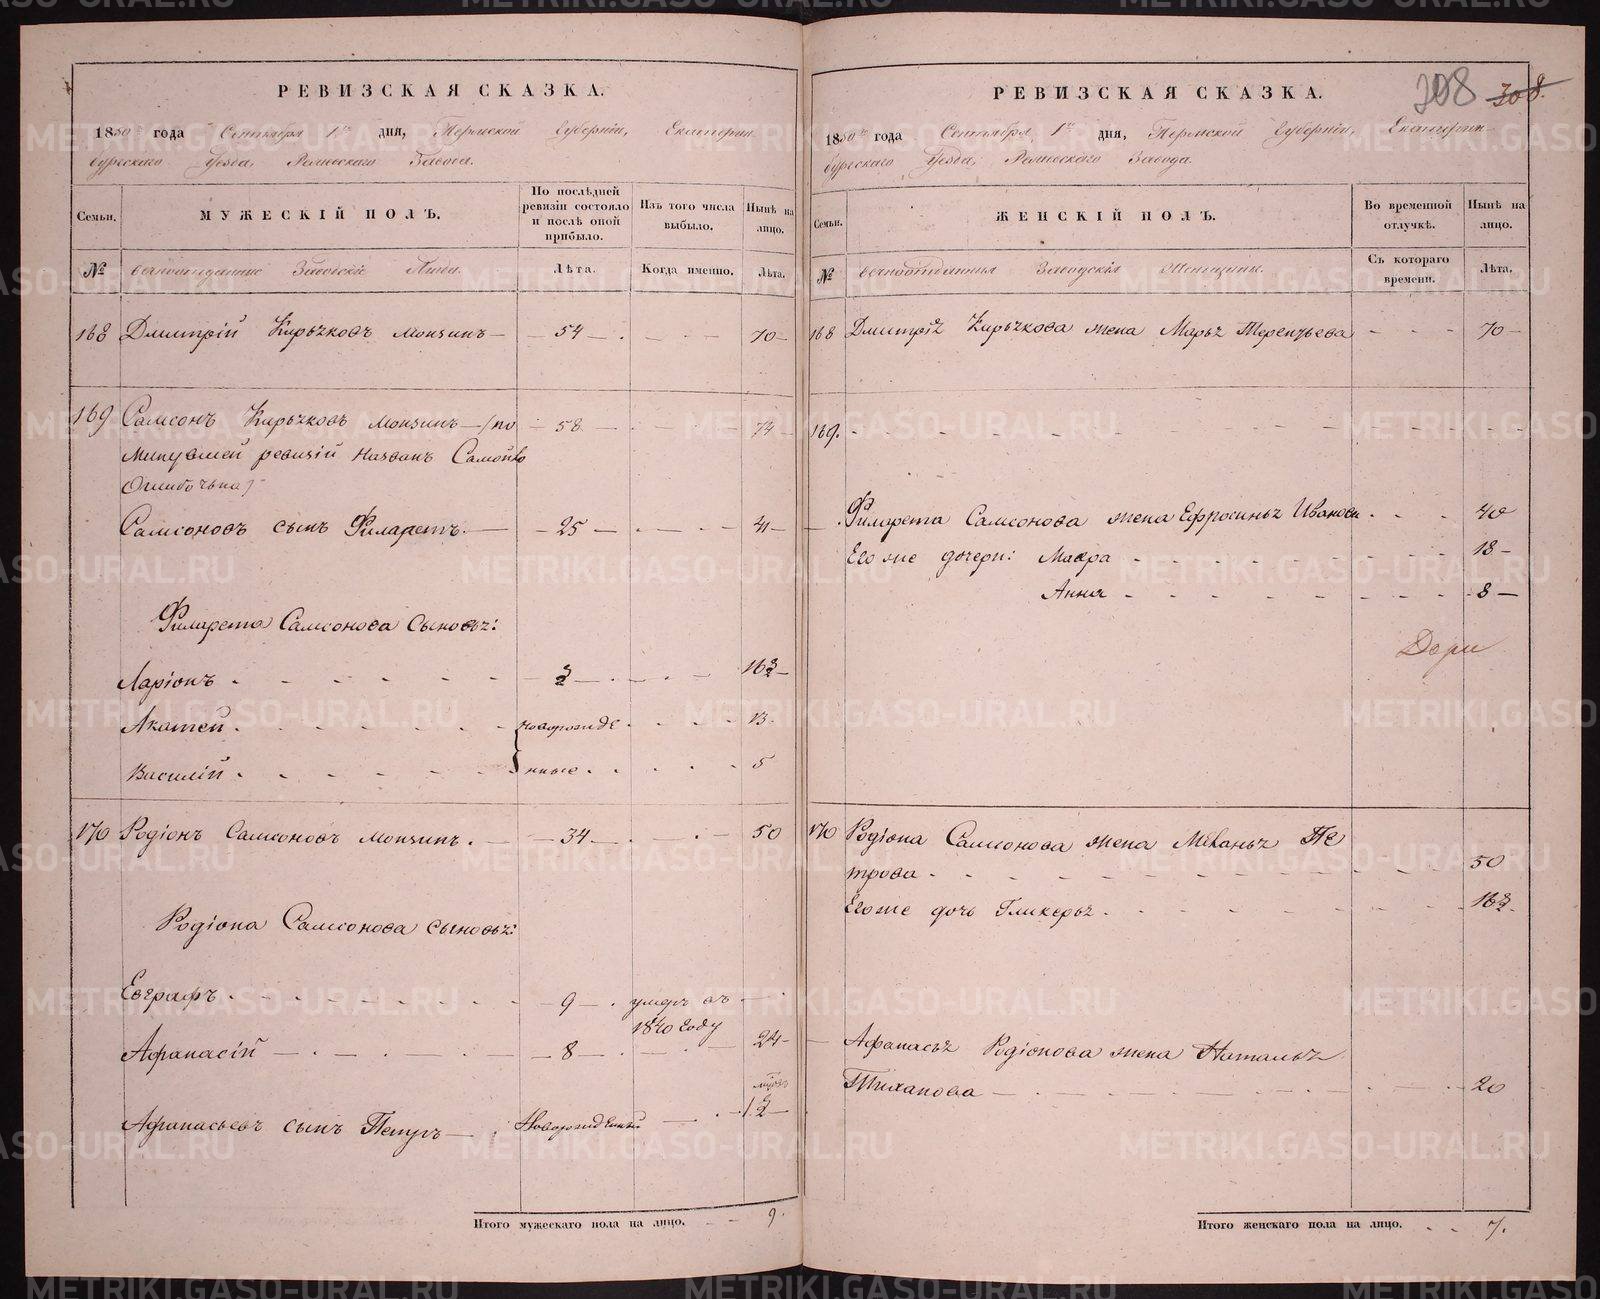 РЕВИЗСКАЯ СКАЗКА.
1850го года Сентября 1го дня, Пермской Губернiи, Екатерин-
бургскаго Уѣзда, Режевскаго Завода.
Семьи.
МУЖЕСКIЙ ПОЛЪ.
По послѣдней ревизiи состояло и послѣ оной прибыло.
Изъ того числа выбыло.
Нынѣ на лицо.
№
вечноотданные Заводскiе Люди.
Лѣта.
Когда именно.
Лѣта.
168 Дмитрiй Кирѣковъ Мокзинъ 54 70
169 Самсонъ Кирѣковъ Мокзинъ (по 58 74
минувшей ревизiи названъ Самойло
Ошибочьна)
Самсоновъ сынъ Филаретъ. 25 41
Филарета Самсонова Сыновья:
Ларiонъ 1/2 16 1/2
Акатей новорожде 13
Василiй нные 5
170 Родiонъ Самсоновъ Мокзинъ. 34 50
Родiона Самсонова сыновья:
Евграфъ 9 умеръ въ
1840 году
Афанасiй 8 24
Афанасьевъ сынъ Петръ Новорожденный 1/2
Итого мужескаго пола на лицо. 9.
308 308.
РЕВИЗСКАЯ СКАЗКА.
1850го года Сентября 1го дня, Пермской Губернiи, Екатерин-
бургскаго Уѣзда, Режевскаго Завода.
Семьи.
ЖЕНСКIЙ ПОЛЪ.
Во временной отлучкѣ.
Нынѣ на лицо.
№
вечноотданныя Заводскiя Женщины.
Съ котораго времени.
Лѣта.
168 Дмитрiя Кирѣкова жена Марья Терентьева 70
169.
Филарета Самсонова жена Ефросинья Иванова 40
Его же дочери: Мавра 18
Анна 8
170 Родiона Самсонова жена Меланья Пе
трова 50
Его же дочь Гликерья 16 1/2
Афанасья Родiонова жена Наталья
Тиханова 20
Итого женскаго пола на лицо. 7.
METRIKI.GASO-URAL.RU